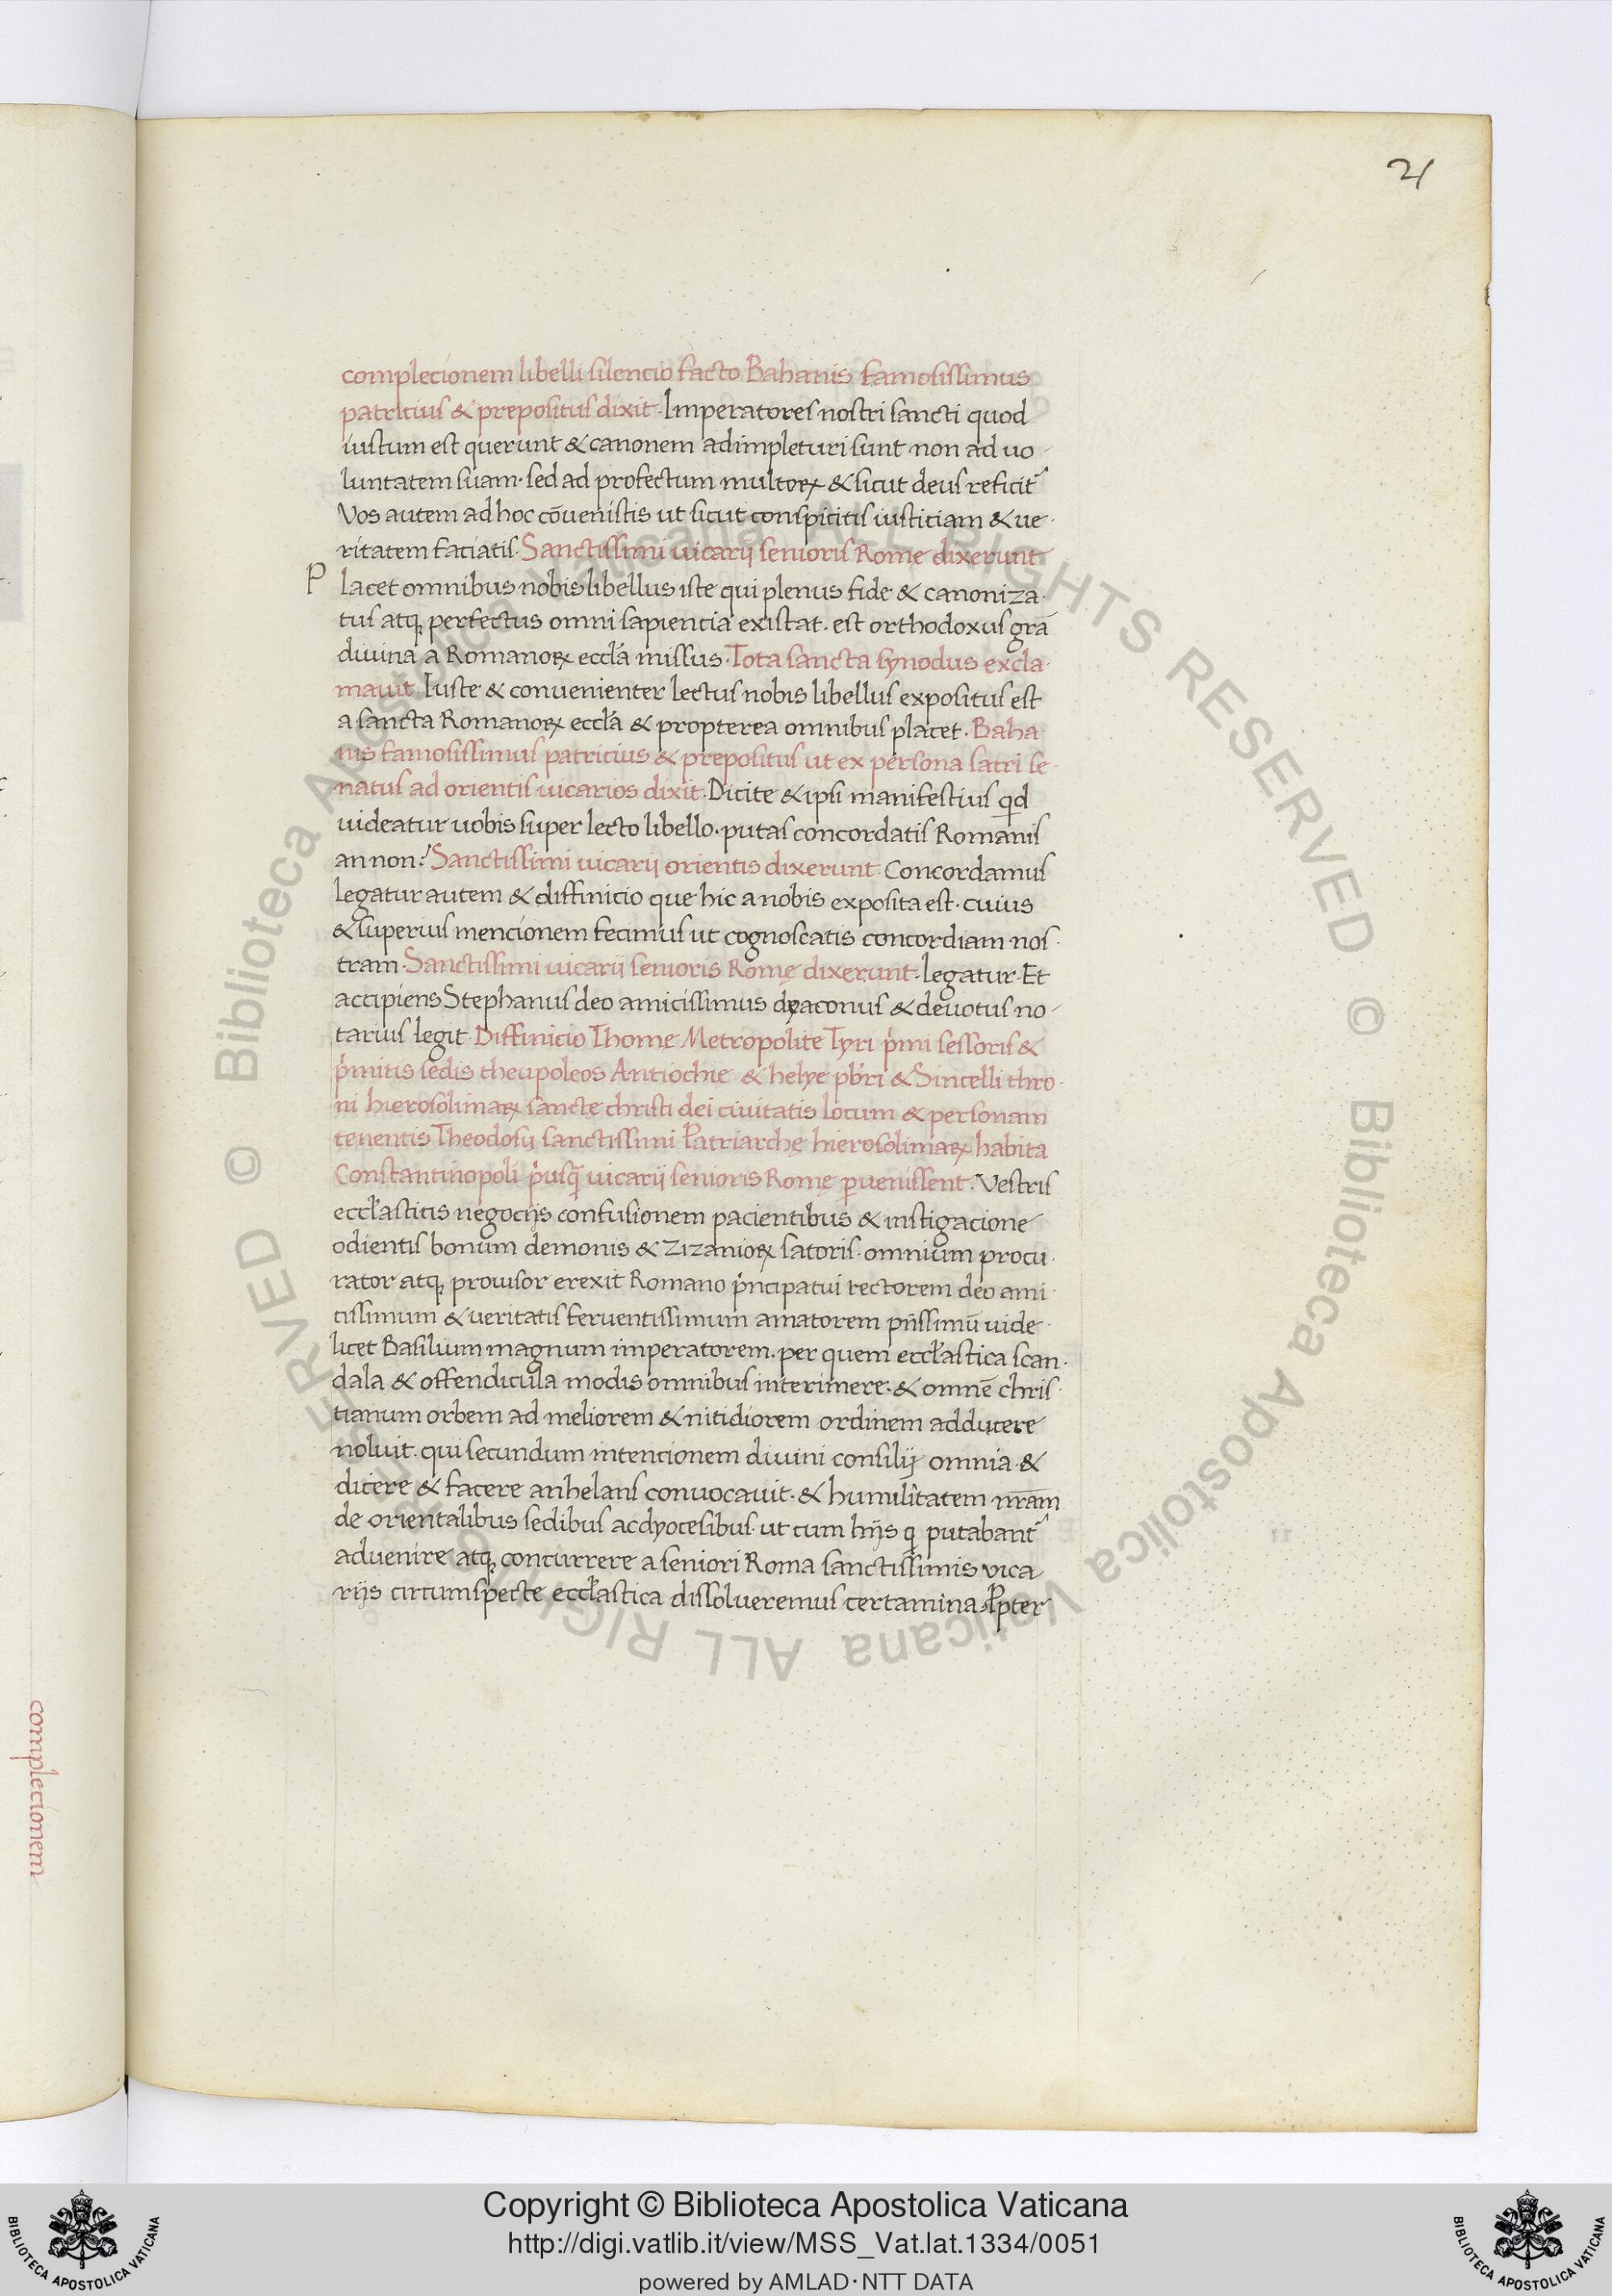 21
complecionem libelli silencio facto Bahanis famosissimus
patricius & prepositus dixit. Imperatores nostri sancti quod
iustum est querunt & canonem adimpleturi sunt non ad uo-
luntatem suam. sed ad profectum multoꝝ & sicut deus reficit
Vos autem ad hoc cōuenistis ut sicut conspicitis iusticiam & ue-
ritatem faciatis. Sanctissimi uicarij senioris Romę dixerunt
P lacet omnibus nobis libellus iste qui plenus fide & canoniza-
tus atq; perfectus omni sapiencia existat. est orthodoxus grā
diuina a Romanoꝝ ecclā missus. Tota sancta synodus excla-
mauit. Iuste & conuenienter lectus nobis libellus expositus est
a sancta Romanoꝝ ecclā & propterea omnibus placet. Baha
nis famosissimus patricius & prepositus ut ex persona sacri se-
natus ad orientis uicarios dixit. Dicite & ipsi manifestius qd
uideatur uobis super lecto libello. putas concordatis Romanis
an non? Sanctissimi uicarij orientis dixerunt. Concordamus
legatur autem & diffinicio que hic a nobis exposita est. cuius
& superius mencionem fecimus ut cognoscatis concordiam nos-
tram. Sanctissimi uicarij senioris Romę dixerunt. legatur. Et
accipiens Stephanus deo amicissimus dyaconus & deuotus no-
tarius legit. Diffinicio Thomę Metropolite Tyri p̾mi sessoris &
p̾mitis sedis theupoleos Antiochie & helye pb̄ri & Sincelli thro-
ni hierosolimaꝝ sanctę christi dei ciuitatis locum & personam
tenentis Theodosij sanctissimi Patriarchę hierosolimaꝝ habita
Constantinopoli p̾usq̄ uicarij senioris Romę ꝑuenissent. Vestris
eccl̄asticis negocijs confusionem pacientibus & instigacione
odientis bonum demonis & zizanioꝝ satoris. omnium procu-
rator atq; prouisor erexit Romano p̾ncipatui rectorem deo ami-
cissimum & ueritatis feruentissimum amatorem pijssimū uide-
licet Basilium magnum imperatorem. per quem eccl̄astica scan-
dala & offendicula modis omnibus interimere. & omnē chris-
tianum orbem ad meliorem & nitidiorem ordinem adducere
noluit. qui secundum intencionem diuini consilij omnia &
dicere & facere anhelans conuocauit. & humilitatem nr̄am
de orientalibus sedibus ac dyocesibus. ut cum hijs q putabant
aduenire atq; concurrere a seniori Roma sanctissimis vica
rijs circumspecte eccl̄astica dissolueremus certamina. Ꝓpter
complecionem
Copyright © Biblioteca Apostolica Vaticana
http://digi.vatlib.it/view/MSS_Vat.lat.1334/0051
powered by AMLAD·NTT DATA
BIBLIOTECA APOSTOLICA VATICANA
BIBLIOTECA APOSTOLICA VATICANA
© Biblioteca Apostolica Vaticana ALL RIGHTS RESERVED © Biblioteca Apostolica Vaticana ALL RIGHTS RESERVED